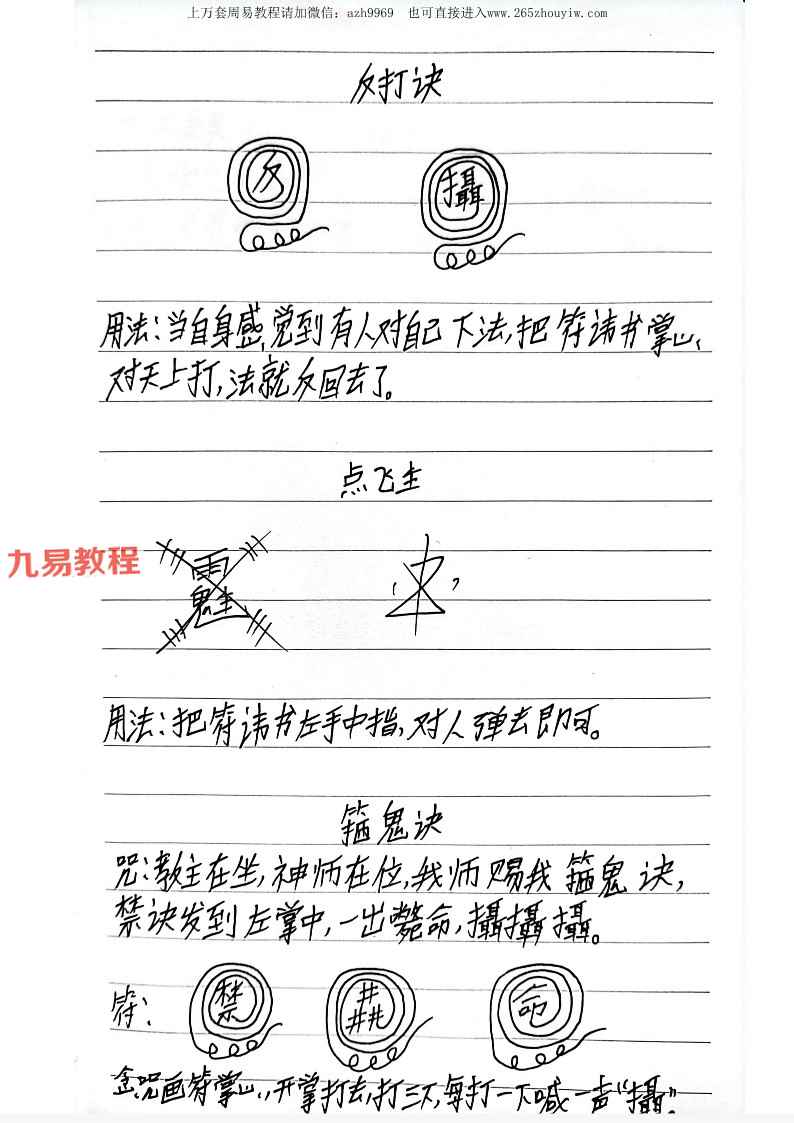 上万套周易教程请加微信：azh9969 也可直接进入www.265zhouyiw.com
反打诀
反 攝
用法：当自身感觉到有人对自己下法，把符讳书掌心，
对天上打，法就反回去了。
点飞
九易教程
用法：把符讳书左手中指，对人弹去即可。
鬼诀
咒：教主在坐，神师在位，我师赐我 鬼诀，
禁诀发到左掌中，一出毙命，攝攝攝。
符：
禁 井井井 命
念咒画符掌心，开掌打去，打三下，每打一下喊一声“攝”